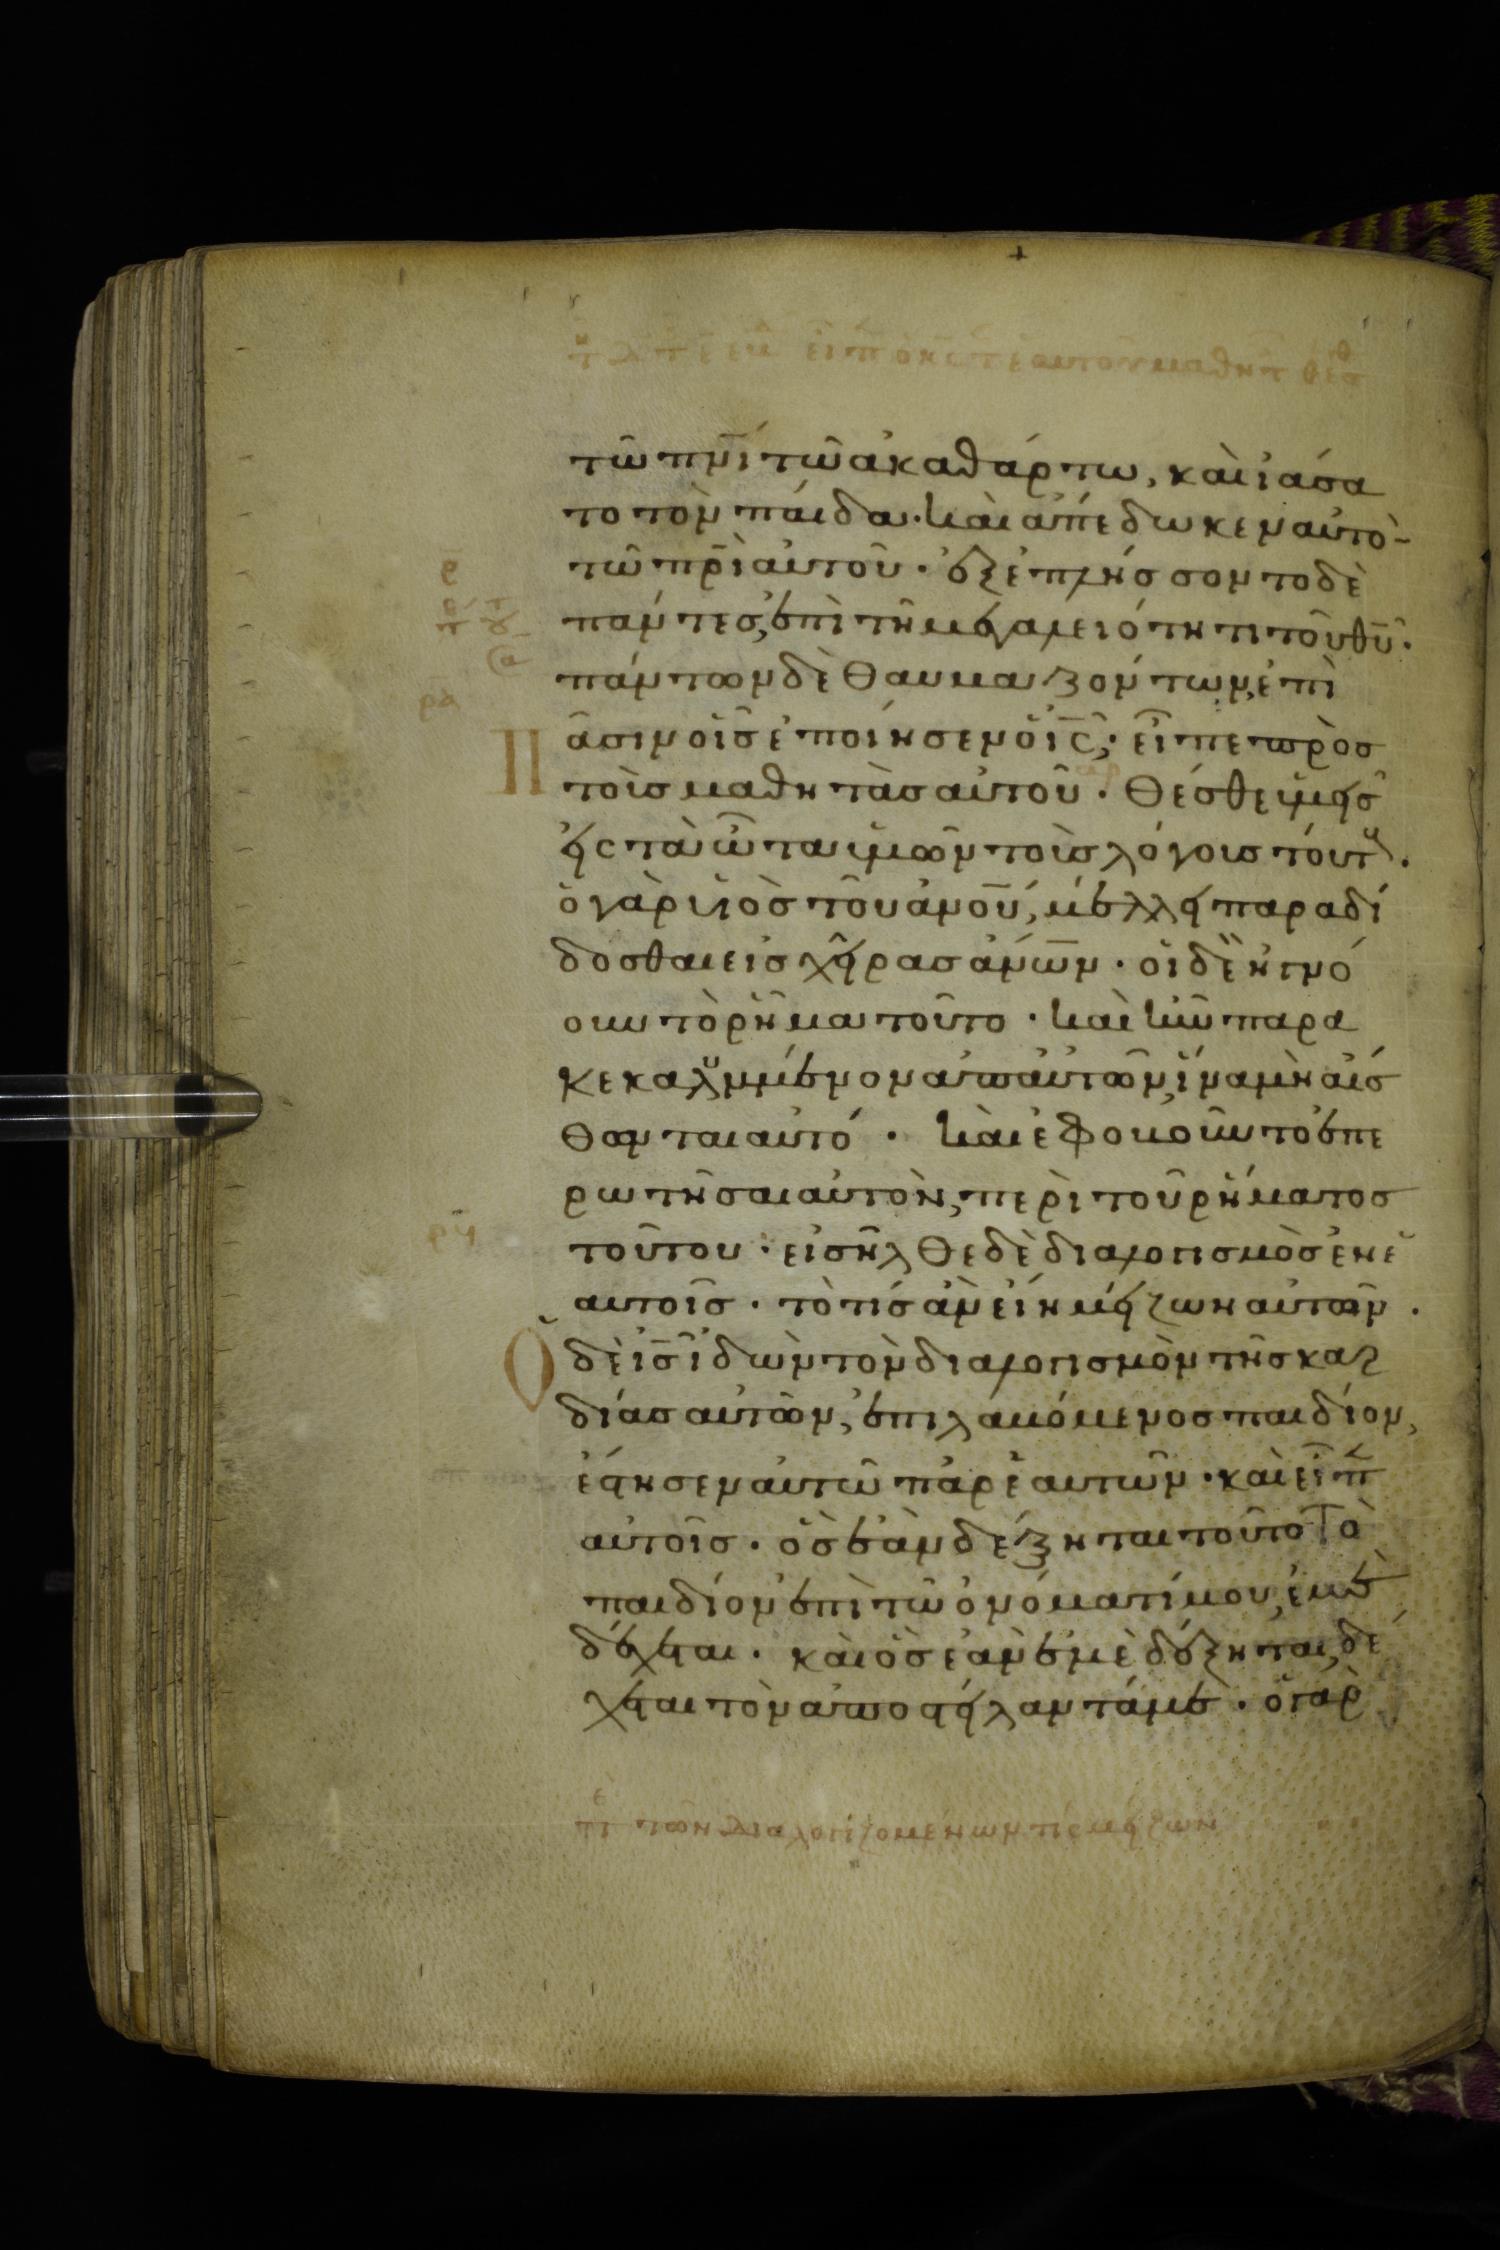 τῶ πνῒ τῶ ἀκαθάρτω, καὶ ἰάσα
το τὸν παίδα· καὶ ἀπέδωκεν αὐτὸ-
τῶ πρῒ αὐτοῦ· ἐξεπλήσσοντο δὲ
πάντες, ἐπὶ τῆ μεγαλειότητι τοῦ θῦ·
πάντων δὲ θαυμαζόντων, ἐπὶ
ᾶσιν οἷς ἐποίησεν ὁ ἰς, εἶπε πρὸσ
τοὺς μαθητὰς αὐτοῦ· Θέσθε ὑμεῖς
εἰς τὰ ὦτα ὑμῶν τοὺς λόγους τούτ·
ὁ γὰρ υἱὸς τοῦ ἀνοῦ, μέλλει παραδί
δοσθαι εἰς χεῖρας ἀνῶν· οἱ δὲ ἠγνό
ουν τὸ ρῆμα τοῦτο· καὶ ἦν παρα
κεκαλυμμένον ἀπ αὐτῶν, ἵνα μὴ αἴσ
θωνται αὐτό· καὶ ἐφοβοῦντο ἐπε
ρωτῆσαι αὐτὸν, περὶ τοῦ ρήματος
τούτου· εἰσῆλθε δὲ διαλογισμὸς ἐν ἑ
αυτοῖς· τὸ τίς ἂν εἴη μείζων αὐτῶν.
Ὁ δὲ ἰς ἰδὼν τὸν διαλογισμὸν τῆς καρ
δίας αὐτῶν, ἐπιλαβόμενος παιδίον,
ἔστησεν αὐτῶ παρ ἑαυτῶν· καὶ εἶπ
αὐτοῖς· ὃς ἐὰν δέξηται τοῦτο Τὸ
παιδίον ἐπὶ τῶ ὀνόματί μου, ἐμὲ
δέχεται· καὶ ὃς ἐὰν ἐμὲ δέξηται, δέ
χεται τὸν ἀποστείλαντά με· ὁ γὰρ
τῶν διαλογιζομένων τίς μείζων